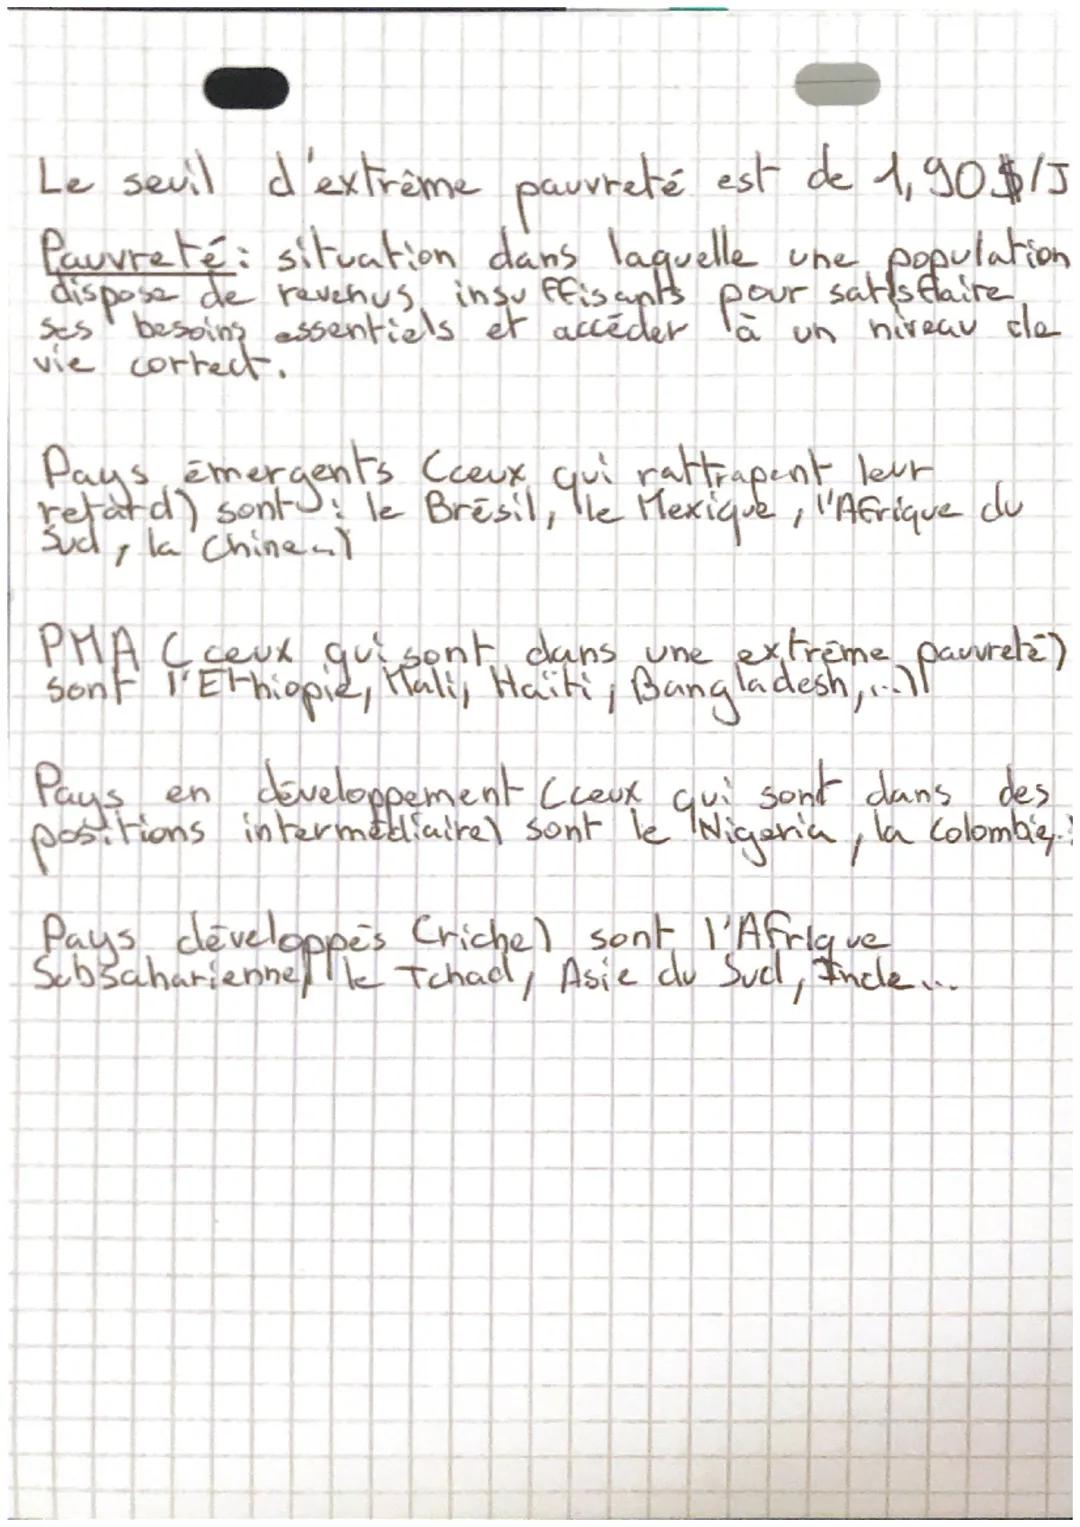 Le seuil d'extrême pauvreté est de 1,90$/J
Pauvreté : situation dans laquelle une population
dispose de revenus insuffisants pour satisfaire
ses besoins essentiels et accéder à un niveau de
vie correct.
Pays émergents (ceux qui rattrapent leur
retard) sont : le Brésil, le Mexique, l'Afrique du
Sud, la Chine...)
PMA (ceux qui sont dans une extrême pauvreté)
sont l'Ethiopie, Mali, Haïti, Bangladesh,...)
Pays en développement (ceux qui sont dans des
positions intermédiaire) sont le Nigeria, la Colombie,..
Pays développés (riche) sont l'Afrique
Subsaharienne, le Tchad, Asie du Sud, Inde...